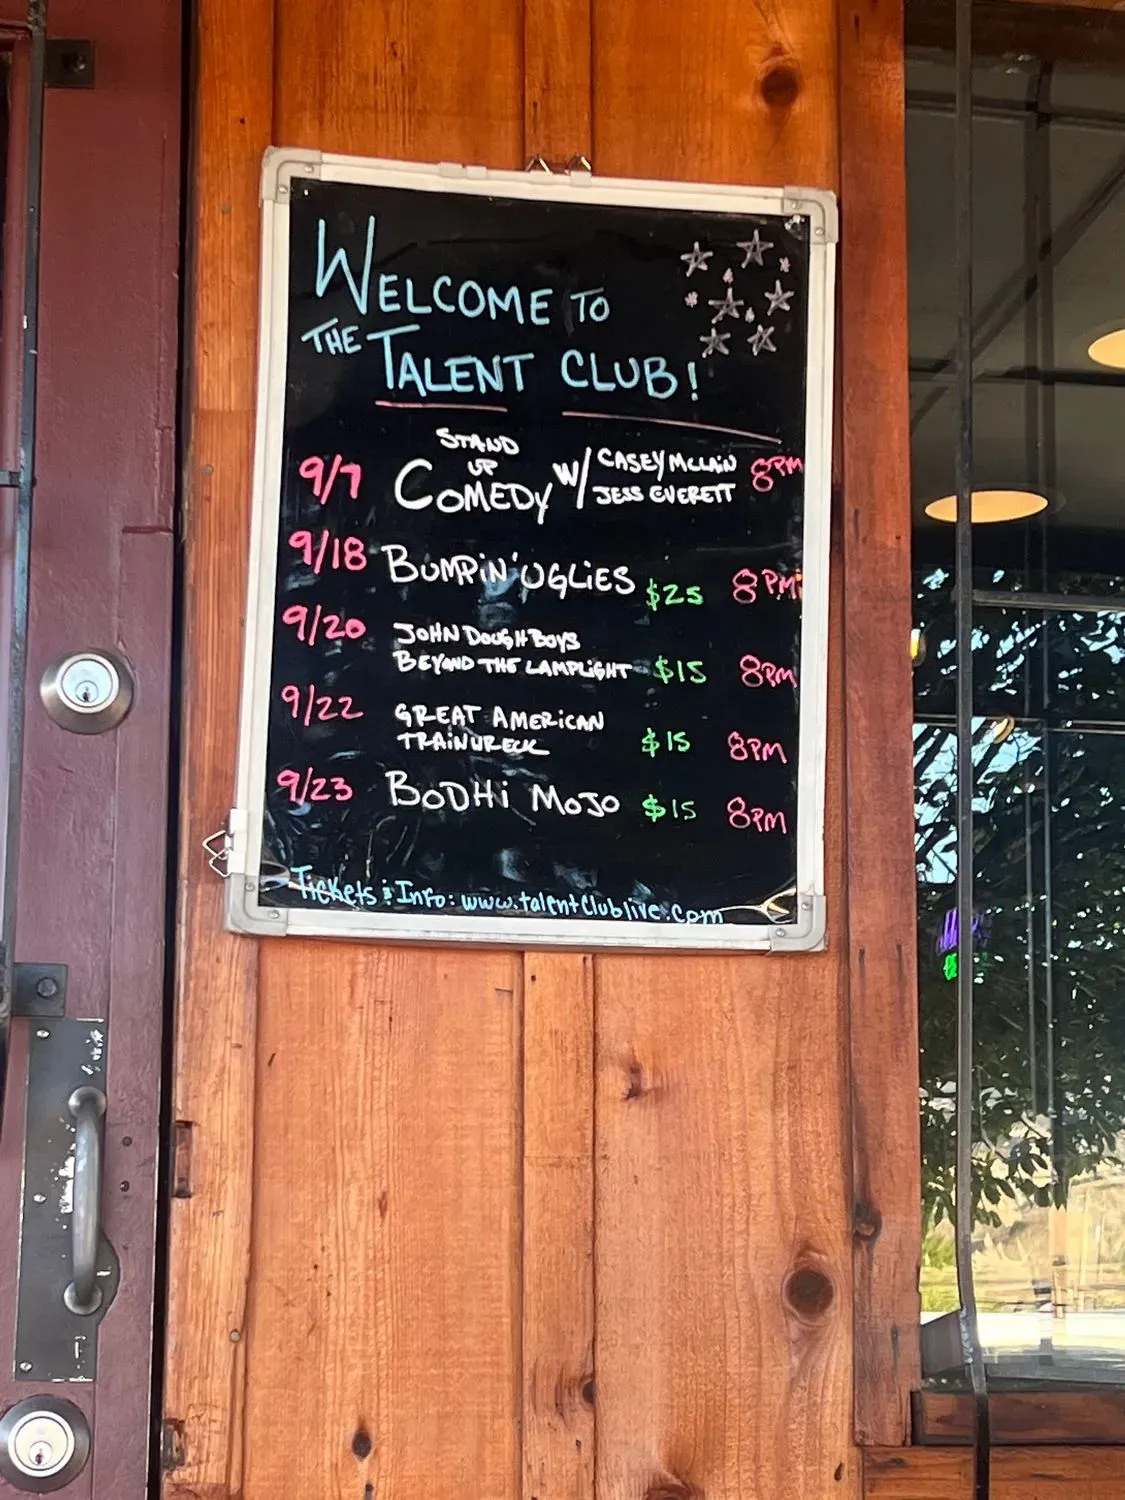 WELCOME TO
THE TALENT CLUB!
9/7 STAND UP COMEDY W/ CASEY MCLAIN JESS EVERETT 8PM
9/18 BUMPIN' UGLIES $25 8PM
9/20 JOHN DOUGH BOYS
BEYOND THE LAMPLIGHT $15 8PM
9/22 GREAT AMERICAN
TRAINWRECK $15 8PM
9/23 BODHI MOJO $15 8PM
Tickets & Info: www.talentclublive.com